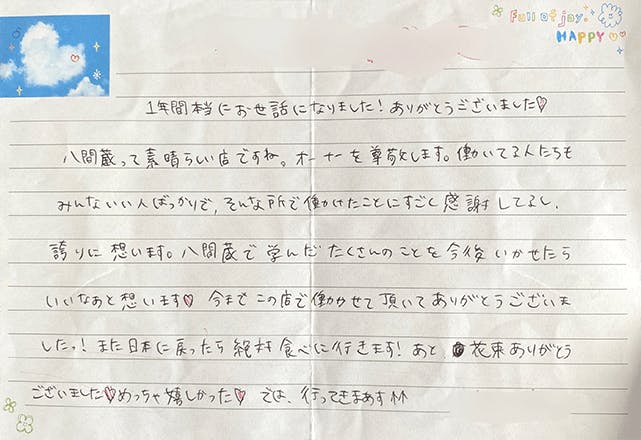 Full of joy.
HAPPY♡♡
1年間本当にお世話になりました!ありがとうございました♡
八間蔵って素晴らしい店ですね。オーナーを尊敬します。働いてる人たちも
みんないい人ばっかりで、そんな所で働かけたことにすごく感謝してるし、
誇りに想います。八間蔵で学んだたくさんのことを今後いかせたら
いいなあと想います♡ 今までこの店で働かせて頂いてありがとうございま
したっ!また日本に戻ったら絶対食べに行きます!あと 花束ありがとう
ございました♡めっちゃ嬉しかった♡ では、行ってきまあす↑↑